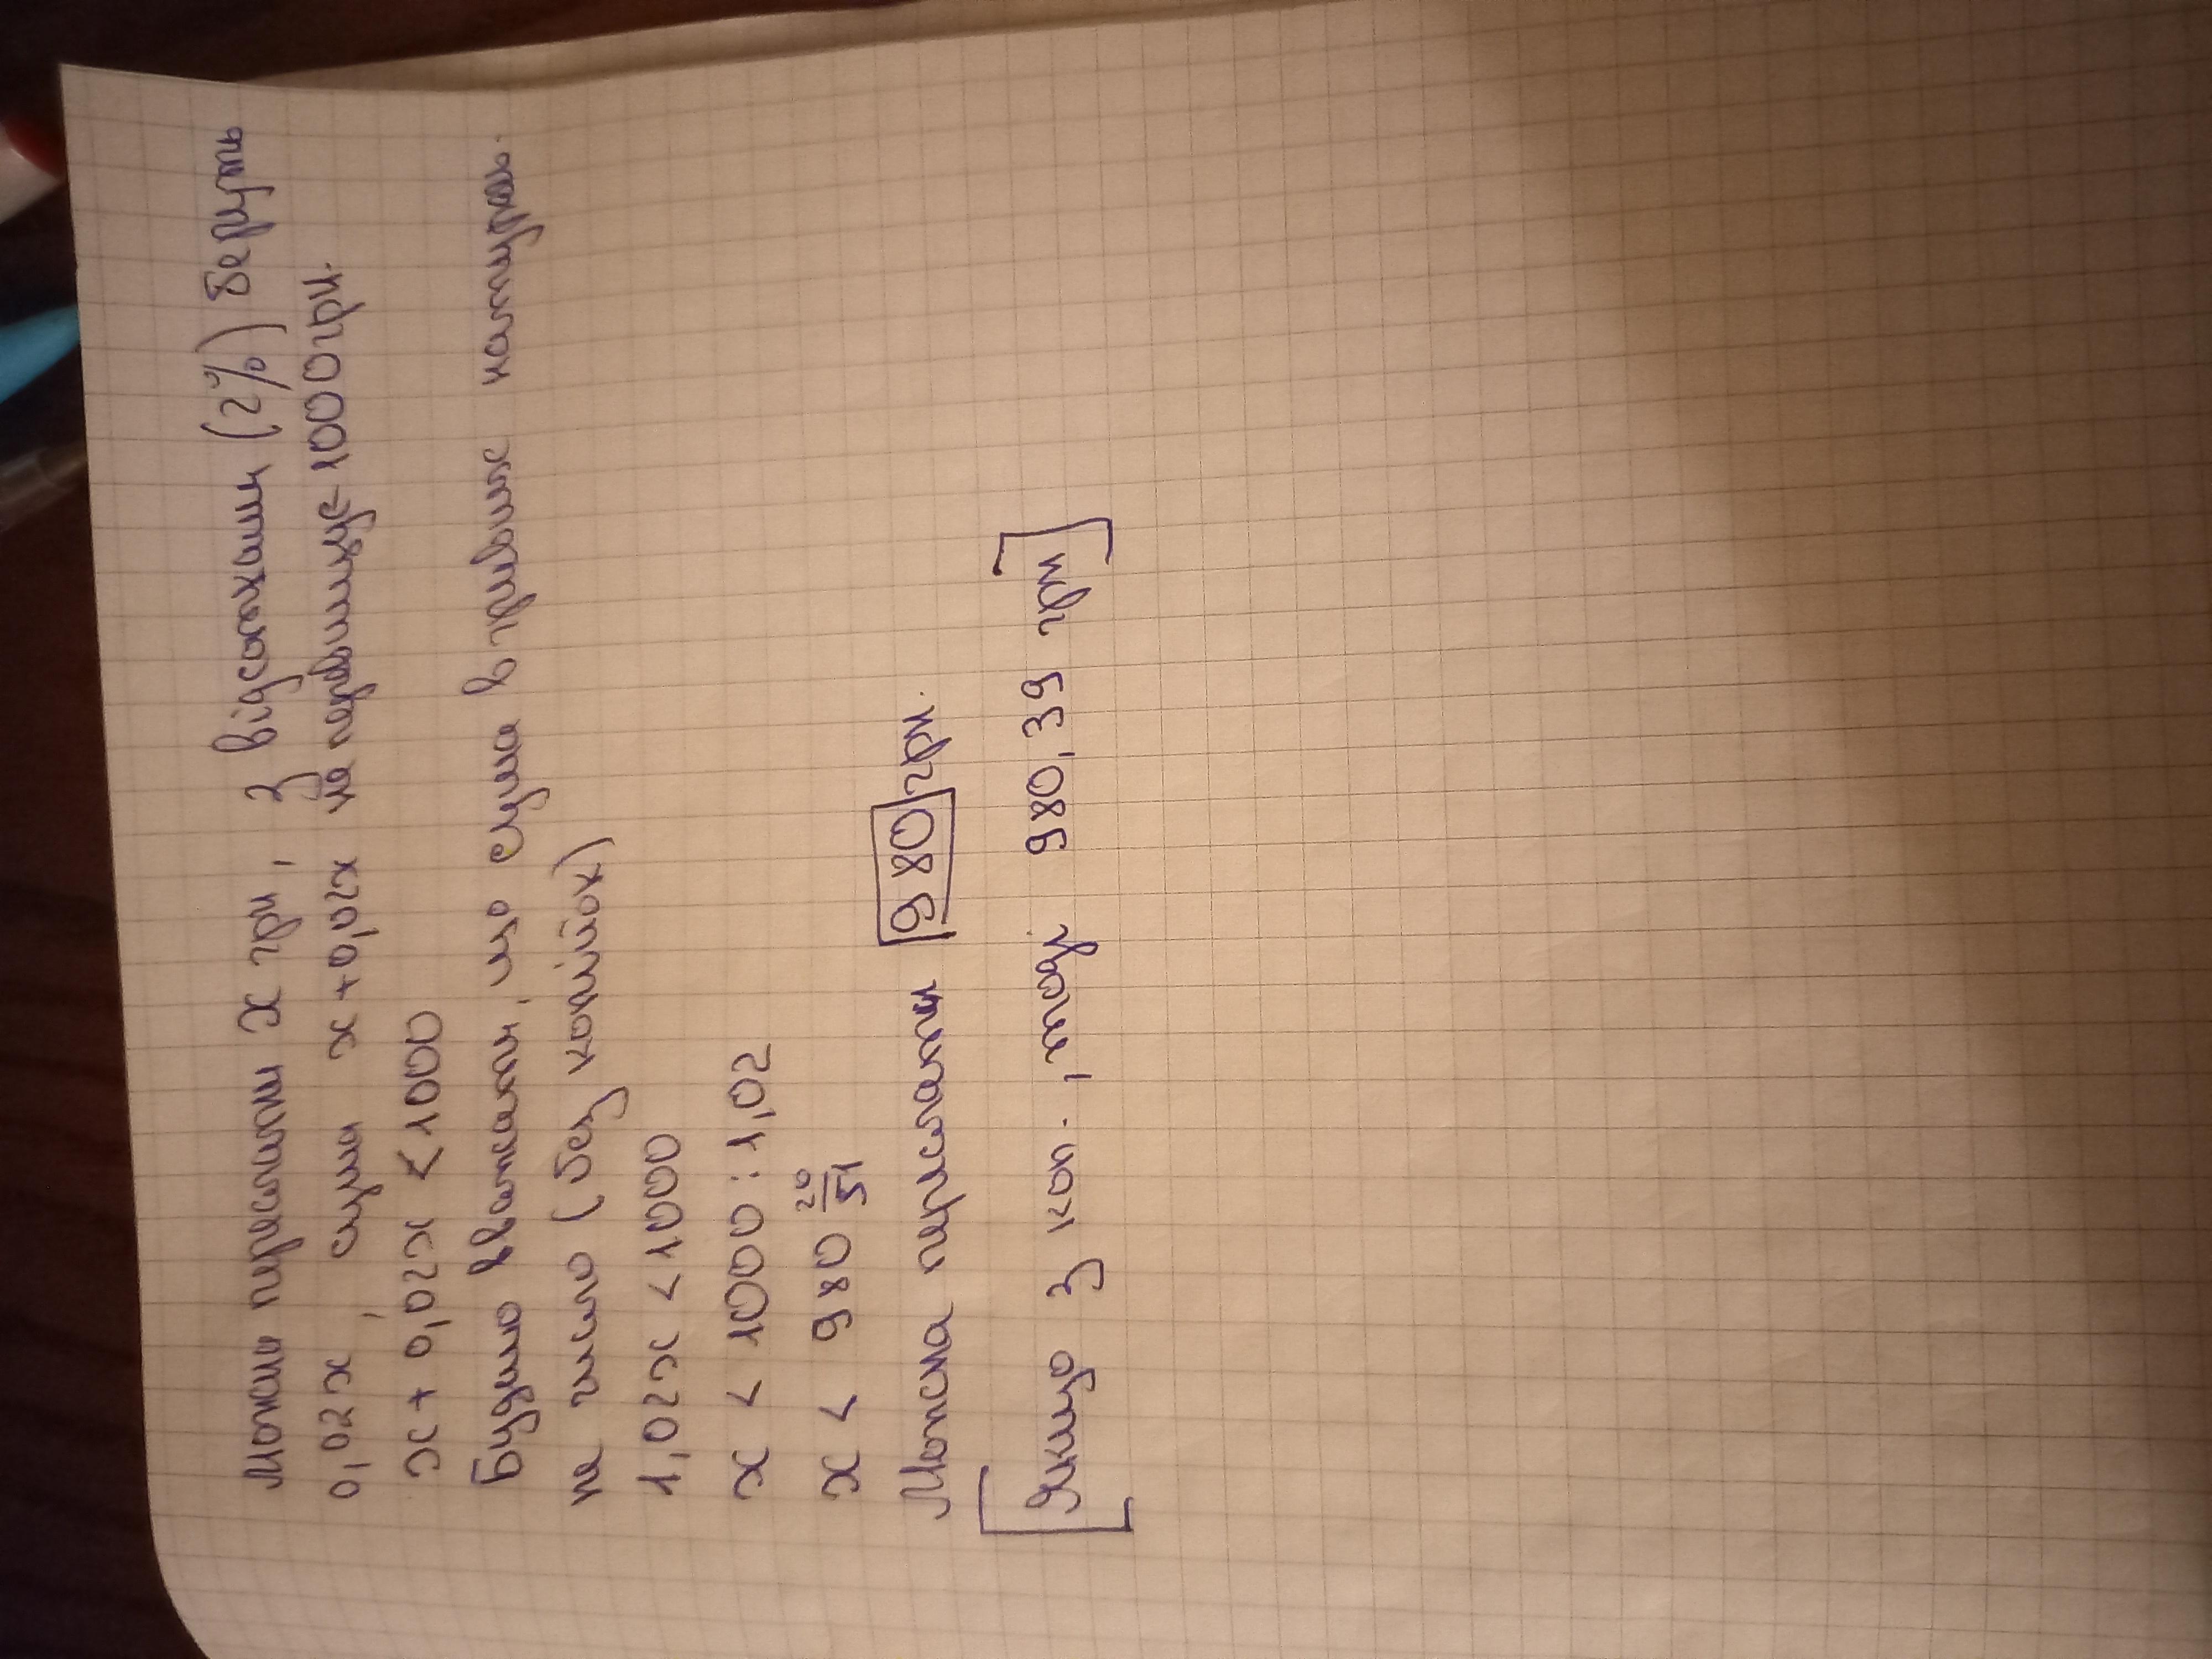 Можно переслати x грн, з відсотками (2%) беруть
0,02x, сума x + 0,02x не перевищує 1000грн.
x + 0,02x < 1000
Будемо вважати, що сума в гривнях натураль-
не число (без копійок)
1,02x < 1000
x < 1000 : 1,02
x < 980 20/51
Можна переслати 980 грн.
[Якщо з коп., тоді 980,39 грн]